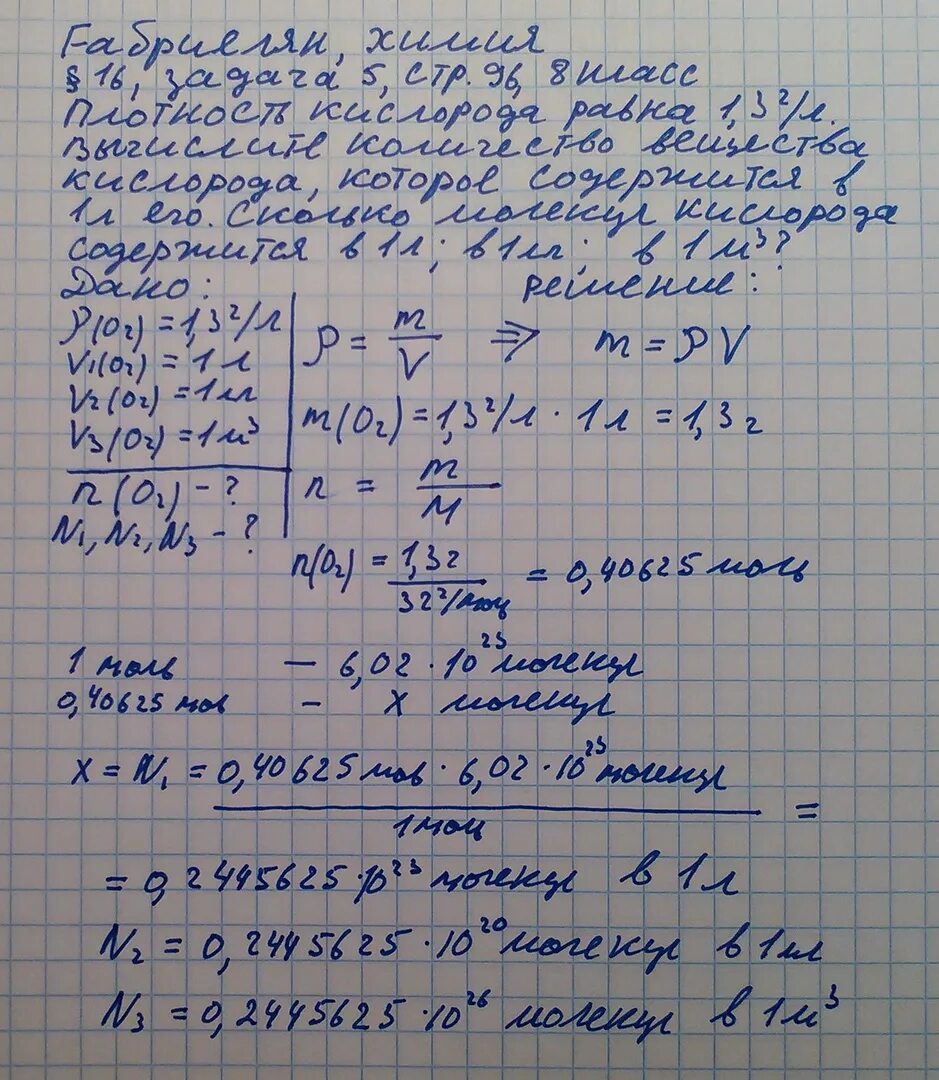 Габриелян, химия
§ 16, задача 5, стр. 96, 8 класс
Плотность кислорода равна 1,3 г/л.
Вычислите количество вещества
кислорода, которое содержится в
1 л его. Сколько молекул кислорода
содержится в 1 л; в 1 мл; в 1 м³?
Дано:
ρ(O₂) = 1,3 г/л
V₁(O₂) = 1 л
V₂(O₂) = 1 мл
V₃(O₂) = 1 м³
n(O₂) - ?
N₁, N₂, N₃ - ?
Решение:
ρ = m/V ⇒ m = ρV
m(O₂) = 1,3 г/л · 1 л = 1,3 г
n = m/M
n(O₂) = 1,3 г / 32 г/моль = 0,40625 моль
1 моль — 6,02 · 10²³ молекул
0,40625 моль — x молекул
x = N₁ = 0,40625 моль · 6,02 · 10²³ молекул / 1 моль =
= 0,2445625 · 10²³ молекул в 1 л
N₂ = 0,2445625 · 10²⁰ молекул в 1 мл
N₃ = 0,2445625 · 10²⁶ молекул в 1 м³